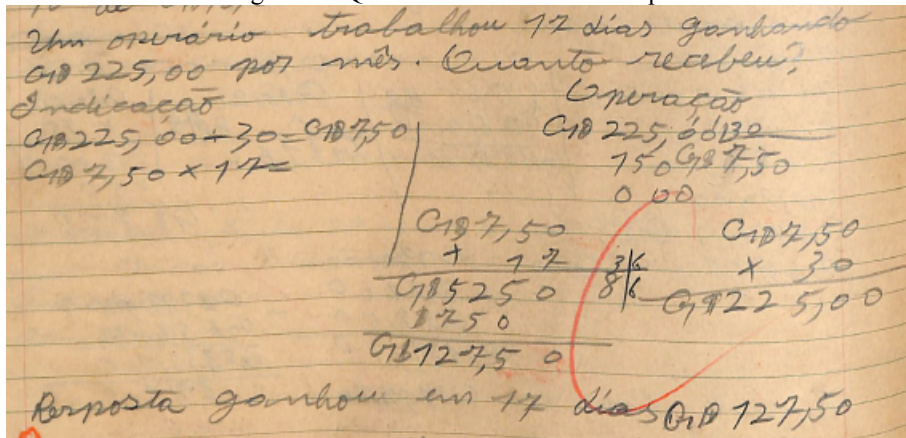 Um operário trabalhou 17 dias ganhando
Cr$ 225,00 por mês. Quanto recebeu?
Indicação
Operação
Cr$ 225,00 ÷ 30 = Cr$ 7,50
Cr$ 7,50 × 17 =
Cr$ 225,00 30
150 Cr$ 7,50
000
Cr$ 7,50
× 17
Cr$ 5250
750
Cr$ 127,50
3 6
8 6
Cr$ 7,50
× 30
Cr$ 225,00
Resposta ganhou em 17 dias Cr$ 127,50